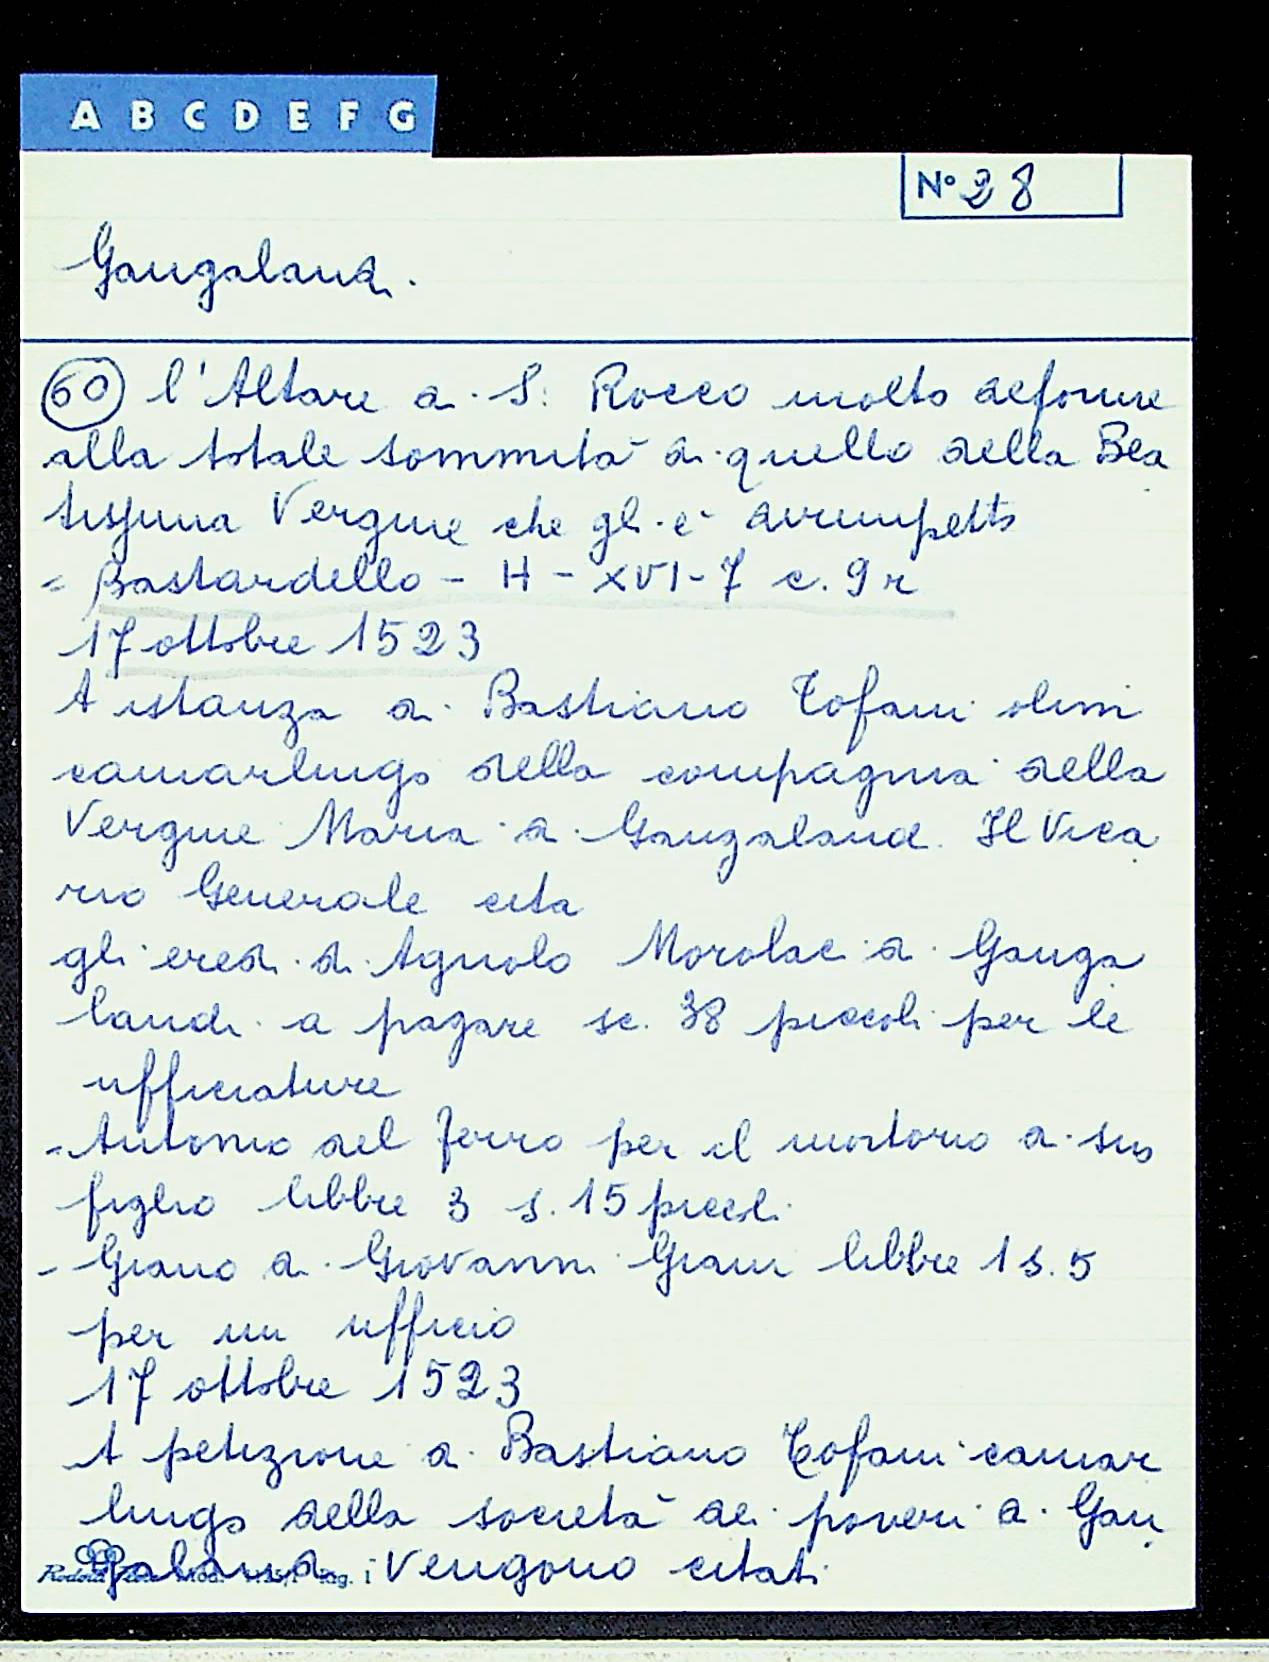 A B C D E F G
N° 28
Gangalandi.
60 l'Altare di S. Rocco molto deforme
alla totale sommità di quello della Bea
tissima Vergine che gli è dirimpetto
= Bastardello - H - XVI - 7 c. 9 r
17 ottobre 1523
A istanza di Bastiano Tofani olim
camarlingo della compagnia della
Vergine Maria di Gangalandi. Il Vica
rio Generale cita
gli eredi di Agnolo Morolac di Ganga
landi a pagare sc. 38 piccoli per le
ufficiature
- Antonio del ferro per il mortorio di suo
figlio libbre 3 s. 15 piccoli
- Giano di Giovanni Giani libbre 1 s. 5
per un ufficio
17 ottobre 1523
A petizione di Bastiano Tofani camar
lingo della società dei poveri di Gan
galandi vengono citati